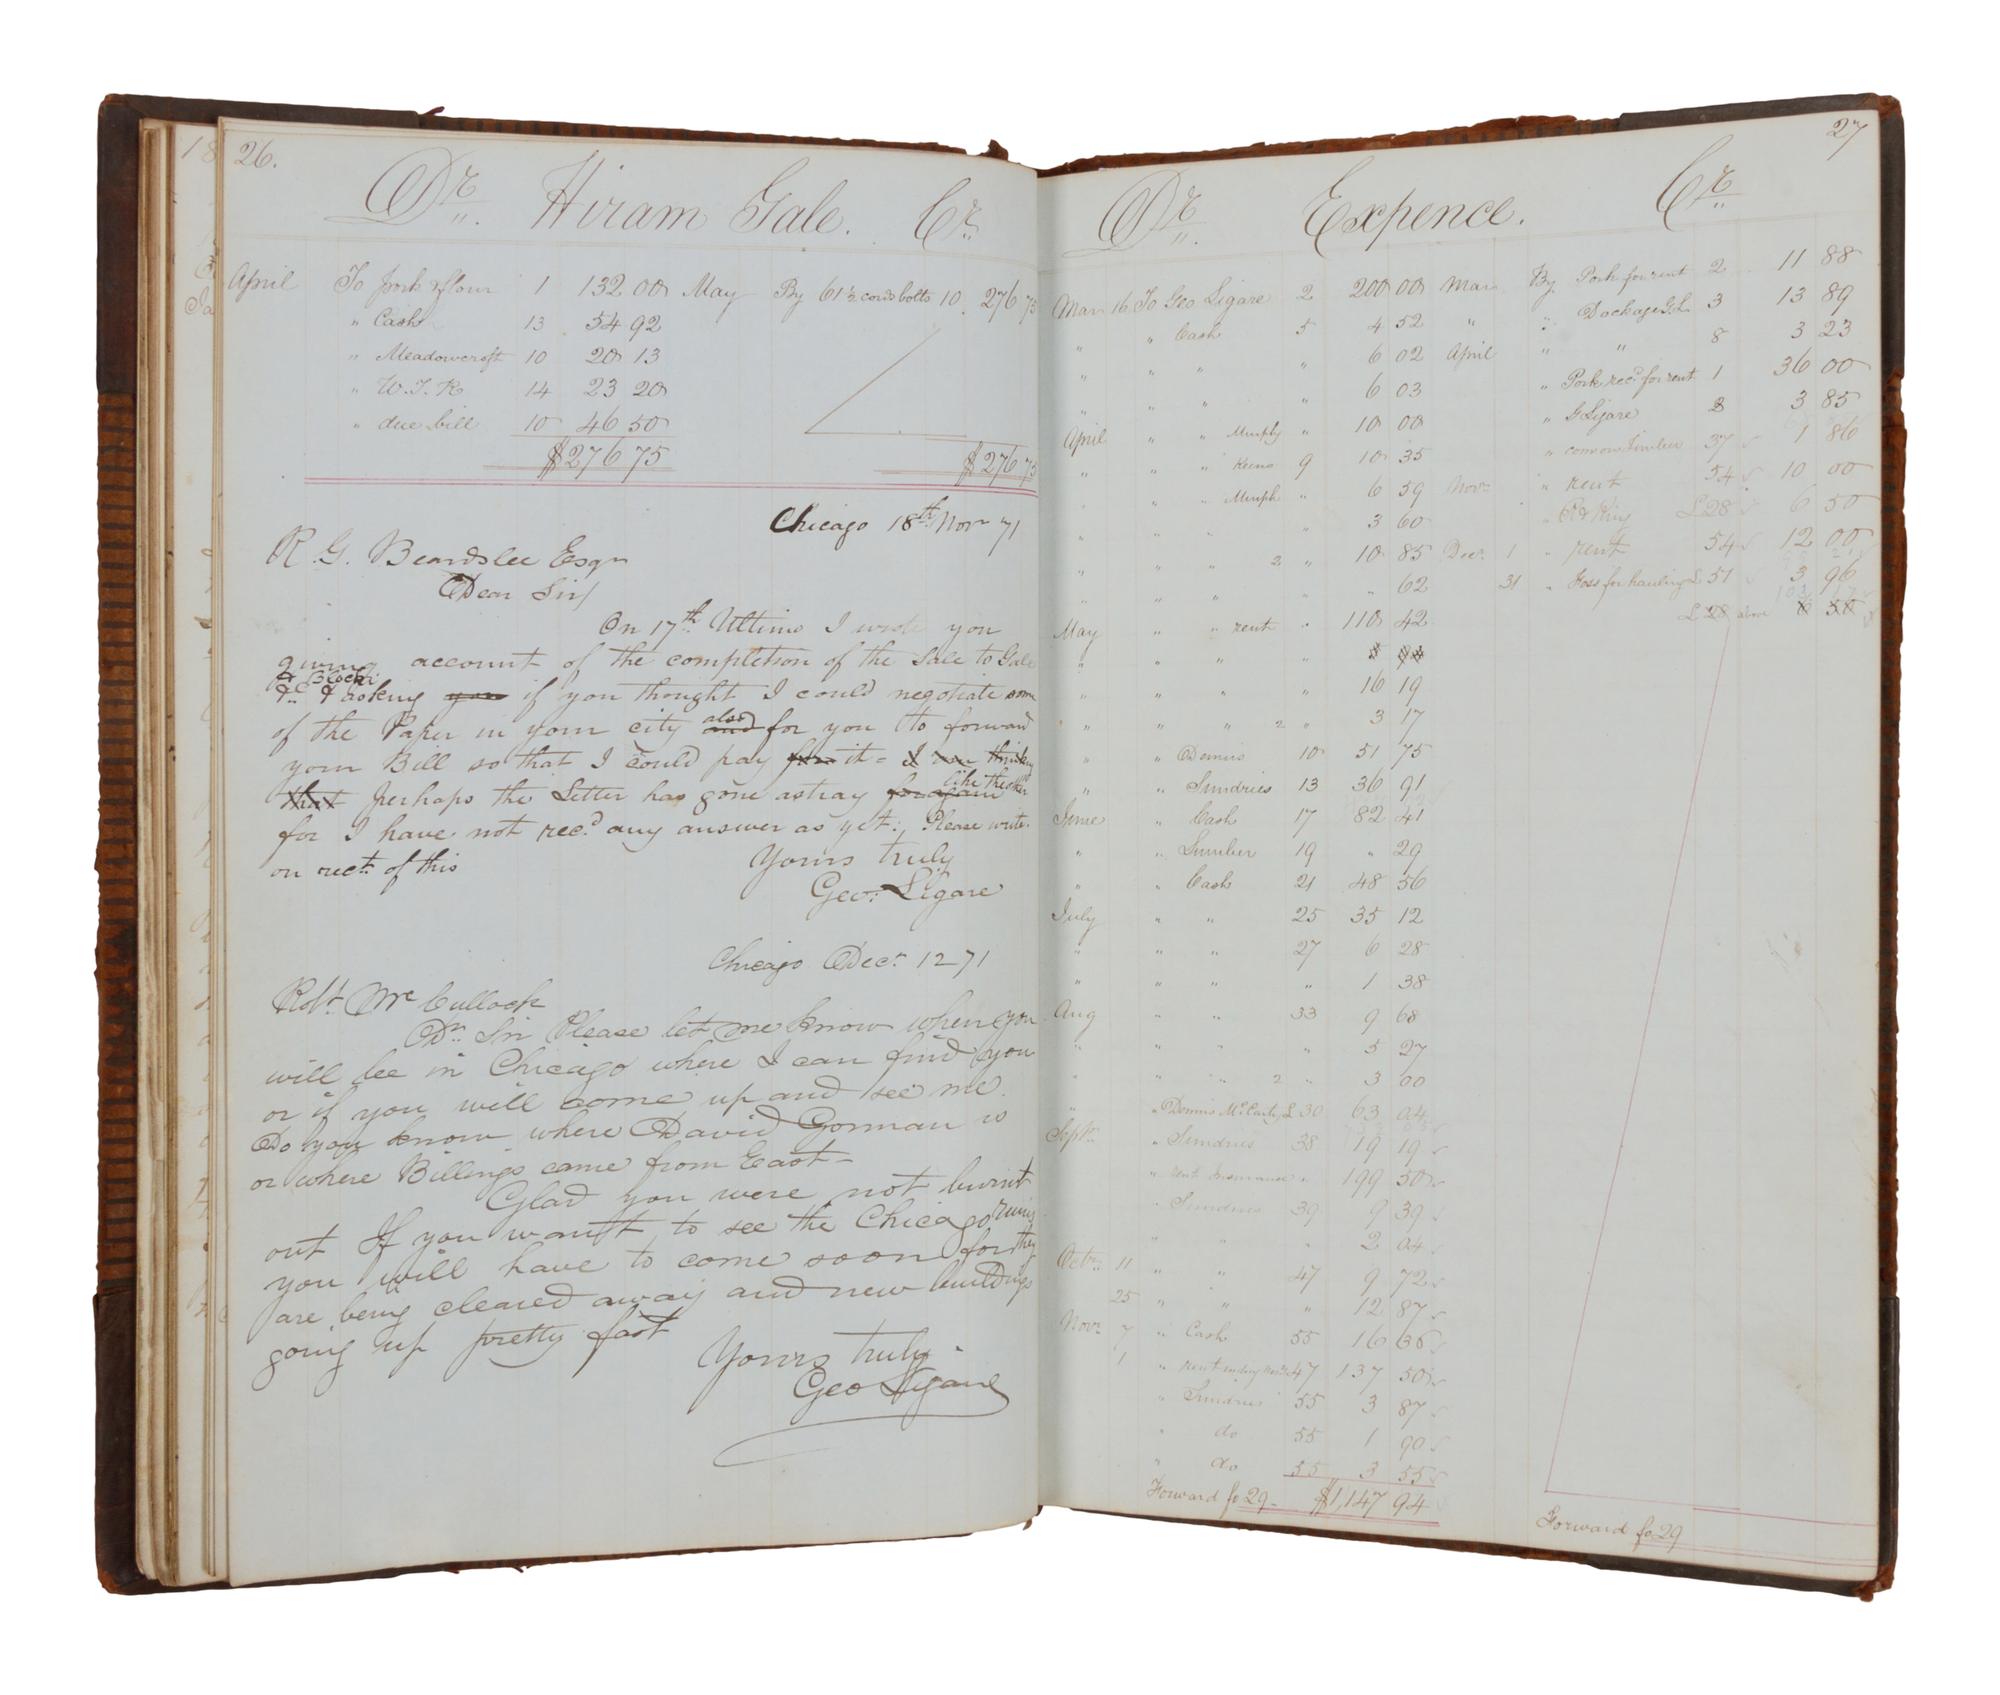 26.
Dr. Hiram Gale. Cr.
April To pork & flour 1 132 00 May By 61½ cords bolts 10 276 75
" Cash 13 54 92
" Meadowcroft 10 20 13
" W.T.K 14 23 20
" due bill 10 46 50
$276 75 $276 75
Chicago 18th Novr 71
R. G. Beardslee Esqr
Dear Sir/
On 17th Ultimo I wrote you
giving account of the completion of the Sale to Gale
& Block
& asking you if you thought I could negotiate some
of the Paper in your city and also for you to forward
your Bill so that I could pay for it - I am thinking
that perhaps the Letter has gone astray for again like the other
for I have not recd any answer as yet: Please write
on rect of this
Yours truly
Geo: Ligare
Chicago Decr 12 71
Robt Mc Cullock
Dr Sir Please let me know when you
will be in Chicago where I can find you
or if you will come up and see me.
Do you know where David Gorman is
or where Billings came from East -
Glad you were not burnt
out If you want to see the Chicago ruins
you will have to come soon for they
are being cleared away and new buildings
going up pretty fast
Yours truly.
Geo Ligare
27
Dr. Expence. Cr.
Mar 16 To Geo Ligare 2 200 00 Mar By Pork for rent 2 11 88
" " Cash 5 4 52 " " Dockage G.L. 3 13 89
" " " " 6 02 April " " 8 3 23
" " " " 6 03 " Pork recd for rent 1 36 00
April " " Murphy " 10 00 " G Ligare 8 3 85
" " " Keens 9 10 35 " common Timber 37 1 86
" " " Murph " 6 59 Novr " rent 54 10 00
" " " " 3 60 " L 28 6 50
" " " 2 " 10 85 Decr 1 " rent 54 12 00
" " " " 62 31 " Foss for hauling L 51 3 96
May " " rent " 110 42 L 28 above 6 50
" " " "
" " " " 16 19
" " " 2 " 3 17
" " Dennis 10 51 75
" " Sundries 13 36 91
June " Cash 17 82 41
" " Lumber 19 " 29
" " Cash 21 48 56
July " " 25 35 12
" " " 27 6 28
" " " " 1 38
Aug " " 33 9 68
" " " " 5 27
" " " 2 " 3 00
" " Dennis McCarty L 30 63 04
Septr " Sundries 38 19 19
" rent Insurance " 199 50
" Sundries 39 9 39
" " " 2 04
Octr 11 " " 47 9 72
25 " " " 12 87
Novr 7 " Cash 55 16 36
1 " rent ending 47 137 50
" Sundries 55 3 87
" do 55 1 90
" do 55 3 55
Forward fo 29 - $1,147 94
Forward fo 29